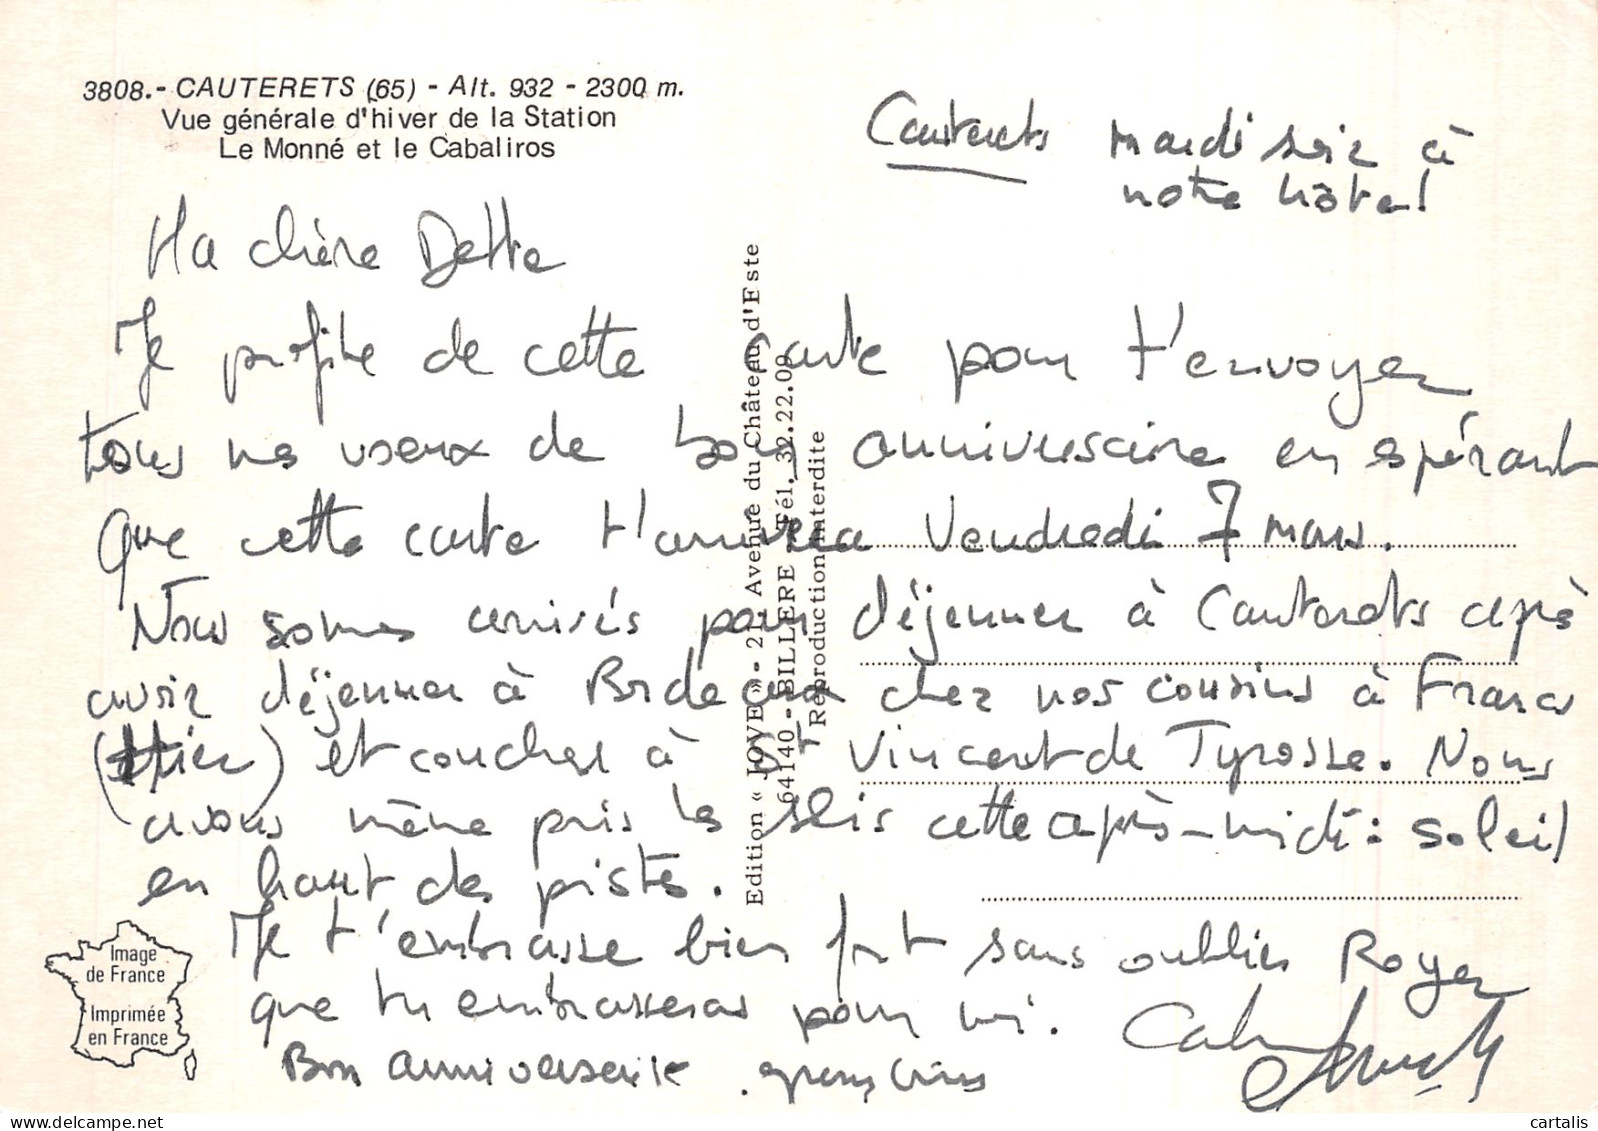 3808.- CAUTERETS (65) - Alt. 932 - 2300 m.
Vue générale d'hiver de la Station
Le Monné et le Cabaliros
Cauterets mardi soir à
notre hôtel
Ma chère Dette
Je profite de cette carte pour t'envoyer
tous mes vœux de bon anniversaire en espérant
que cette carte t'arrivera Vendredi 7 mars.
Nous sommes arrivés pour déjeuner à Cauterets après
avoir déjeuner à Bordeaux chez nos cousins à Francs
(Hier) et coucher à St Vincent de Tyrosse. Nous
avons même pris les skis cette après-midi : soleil
en haut des pistes.
Je t'embrasse bien fort sans oublier Royer
que tu embrasseras pour moi.
Bon anniversaire. gros bises
Edition « JOVE » - 21, Avenue du Château d'Este
64140 - BILLERE Tél. 32.22.09
Reproduction interdite
Image
de France
Imprimée
en France
cartalis